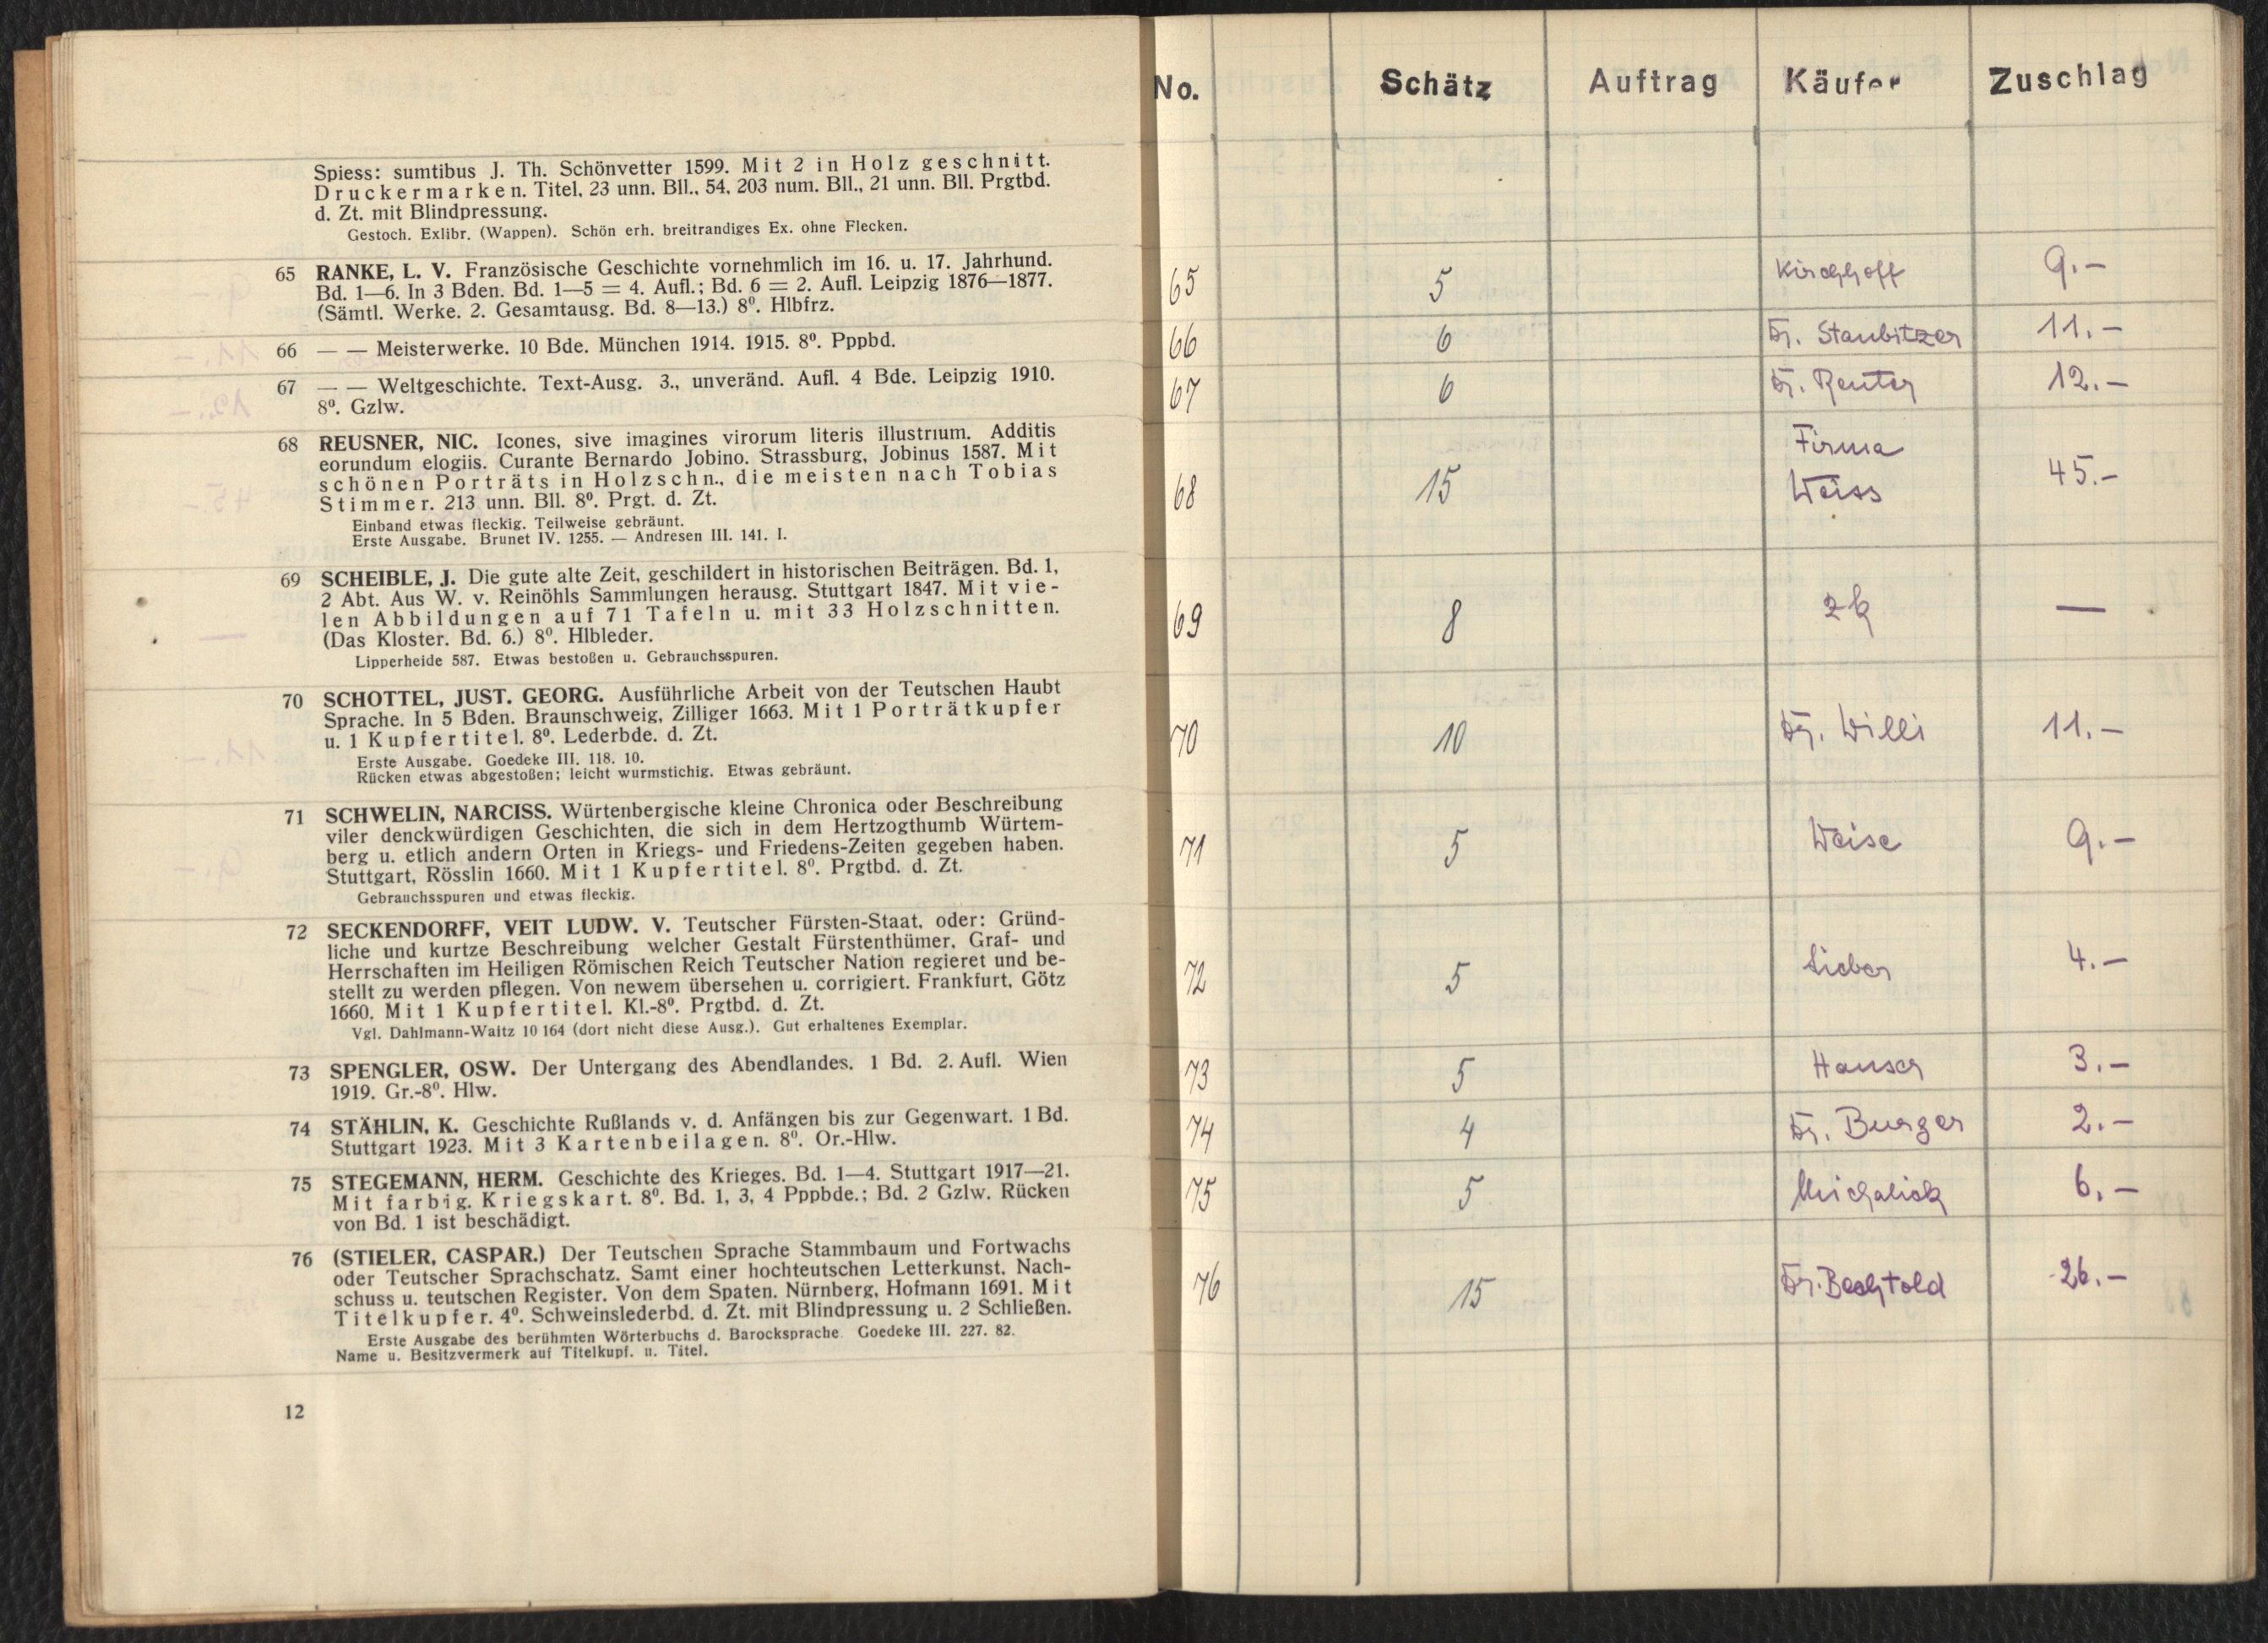 Spiess: sumtibus J. Th. Schönvetter 1599. Mit 2 in Holz geschnitt.
Druckermarken. Titel, 23 unn. Bll., 54, 203 num. Bll., 21 unn. Bll. Prgtbd.
d. Zt. mit Blindpressung.
Gestoch. Exlibr. (Wappen). Schön erh. breitrandiges Ex. ohne Flecken.
65 RANKE, L. V. Französische Geschichte vornehmlich im 16. u. 17. Jahrhund.
Bd. 1—6. In 3 Bden. Bd. 1—5 = 4. Aufl.; Bd. 6 = 2. Aufl. Leipzig 1876—1877.
(Sämtl. Werke. 2. Gesamtausg. Bd. 8—13.) 8⁰. Hlbfrz.
66 — — Meisterwerke. 10 Bde. München 1914. 1915. 8⁰. Pppbd.
67 — — Weltgeschichte. Text-Ausg. 3., unveränd. Aufl. 4 Bde. Leipzig 1910.
8⁰. Gzlw.
68 REUSNER, NIC. Icones, sive imagines virorum literis illustrium. Additis
eorundum elogiis. Curante Bernardo Jobino. Strassburg, Jobinus 1587. Mit
schönen Porträts in Holzschn., die meisten nach Tobias
Stimmer. 213 unn. Bll. 8⁰. Prgt. d. Zt.
Einband etwas fleckig. Teilweise gebräunt.
Erste Ausgabe. Brunet IV. 1255. — Andresen III. 141. I.
69 SCHEIBLE, J. Die gute alte Zeit, geschildert in historischen Beiträgen. Bd. 1,
2 Abt. Aus W. v. Reinöhls Sammlungen herausg. Stuttgart 1847. Mit vie-
len Abbildungen auf 71 Tafeln u. mit 33 Holzschnitten.
(Das Kloster. Bd. 6.) 8⁰. Hlbleder.
Lipperheide 587. Etwas bestoßen u. Gebrauchsspuren.
70 SCHOTTEL, JUST. GEORG. Ausführliche Arbeit von der Teutschen Haubt
Sprache. In 5 Bden. Braunschweig, Zilliger 1663. Mit 1 Porträtkupfer
u. 1 Kupfertitel. 8⁰. Lederbde. d. Zt.
Erste Ausgabe. Goedeke III. 118. 10.
Rücken etwas abgestoßen; leicht wurmstichig. Etwas gebräunt.
71 SCHWELIN, NARCISS. Würtenbergische kleine Chronica oder Beschreibung
viler denckwürdigen Geschichten, die sich in dem Hertzogthumb Würtem-
berg u. etlich andern Orten in Kriegs- und Friedens-Zeiten gegeben haben.
Stuttgart, Rösslin 1660. Mit 1 Kupfertitel. 8⁰. Prgtbd. d. Zt.
Gebrauchsspuren und etwas fleckig.
72 SECKENDORFF, VEIT LUDW. V. Teutscher Fürsten-Staat, oder: Gründ-
liche und kurtze Beschreibung welcher Gestalt Fürstenthümer, Graf- und
Herrschaften im Heiligen Römischen Reich Teutscher Nation regieret und be-
stellt zu werden pflegen. Von newem übersehen u. corrigiert. Frankfurt, Götz
1660. Mit 1 Kupfertitel. Kl.-8⁰. Prgtbd. d. Zt.
Vgl. Dahlmann-Waitz 10 164 (dort nicht diese Ausg.). Gut erhaltenes Exemplar.
73 SPENGLER, OSW. Der Untergang des Abendlandes. 1 Bd. 2. Aufl. Wien
1919. Gr.-8⁰. Hlw.
74 STÄHLIN, K. Geschichte Rußlands v. d. Anfängen bis zur Gegenwart. 1 Bd.
Stuttgart 1923. Mit 3 Kartenbeilagen. 8⁰. Or.-Hlw.
75 STEGEMANN, HERM. Geschichte des Krieges. Bd. 1—4. Stuttgart 1917—21.
Mit farbig. Kriegskart. 8⁰. Bd. 1, 3, 4 Pppbde.; Bd. 2 Gzlw. Rücken
von Bd. 1 ist beschädigt.
76 (STIELER, CASPAR.) Der Teutschen Sprache Stammbaum und Fortwachs
oder Teutscher Sprachschatz. Samt einer hochteutschen Letterkunst, Nach-
schuss u. teutschen Register. Von dem Spaten. Nürnberg, Hofmann 1691. Mit
Titelkupfer. 4⁰. Schweinslederbd. d. Zt. mit Blindpressung u. 2 Schließen.
Erste Ausgabe des berühmten Wörterbuchs d. Barocksprache. Goedeke III. 227. 82.
Name u. Besitzvermerk auf Titelkupf. u. Titel.
12
No. Schätz Auftrag Käufer Zuschlag
65 5 Kirchhoff 9.—
66 6 Dr. Staubitzer 11.—
67 6 Dr. Reuter 12.—
68 15 Firma
Weiss 45.—
69 8 —
70 10 Dr. Willi 11.—
71 5 Weise 9.—
72 5 Lieber 4.—
73 5 Hauser 3.—
74 4 Dr. Burger 2.—
75 5 Michalick 6.—
76 15 Dr. Bechtold 26.—